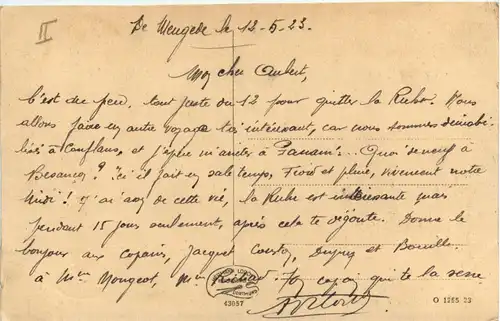 II
De Mengede le 12-5-23.
Mon cher Aubert,
C'est du peu, tout juste du 12 pour quitter la Ruhr. Nous
allons faire un autre voyage très intéressant, car nous sommes démobi-
lisés à Conflans, et j'espère m'arrêter à Panam. Quoi de neuf à
Besançon? ici il fait un sale temps. Froid et pluie, vivement notre
midi! J'ai assez de cette vie, la Ruhr est intéressante mais
pendant 15 jours seulement, après cela te dégoute. Donne le
bonjour aux copains, Jacquet, Dupuy et
à Mme Mongeot, Mme Ton copain qui te la serre
43057
DORTMUND
O 1265 23